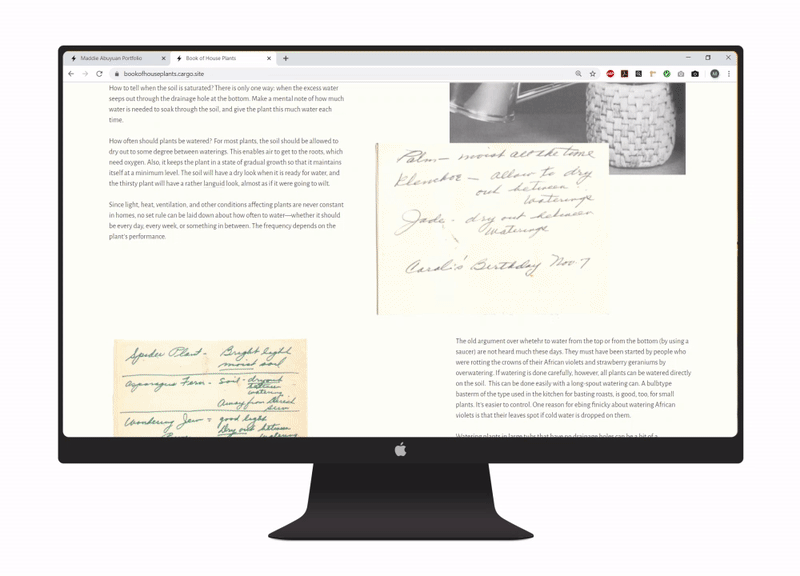 Mackie Abuyuan Portfolio
Book of House Plants
bookofhouseplants.cargo.site
How to tell when the soil is saturated? There is only one way: when the excess water
seeps out through the drainage hole at the bottom. Make a mental note of how much
water is needed to soak through the soil, and give the plant this much water each
time.
How often should plants be watered? For most plants, the soil should be allowed to
dry out to some degree between waterings. This enables air to get to the roots, which
need oxygen. Also, it keeps the plant in a state of gradual growth so that it maintains
itself at a minimum level. The soil will have a dry look when it is ready for water, and
the thirsty plant will have a rather languid look, almost as if it were going to wilt.
Since light, heat, ventilation, and other conditions affecting plants are never constant
in homes, no set rule can be laid down about how often to water—whether it should
be every day, every week, or something in between. The frequency depends on the
plant's performance.
Palm — moist all the time
Klenchoe — allow to dry
out between
waterings
Jade - dry out between
waterings
Carol's Birthday Nov 7
Spider Plant - Bright light
moist soil
Asparagus Fern - Soil - dryout
between
watering
Away from direct
sun
Wondering Jew = good light
Dry out between
watering
The old argument over whetehr to water from the top or from the bottom (by using a
saucer) are not heard much these days. They must have been started by people who
were rotting the crowns of their African violets and strawberry geraniums by
overwatering. If watering is done carefully, however, all plants can be watered directly
on the soil. This can be done easily with a long-spout watering can. A bulbtype
basterm of the type used in the kitchen for basting roasts, is good, too, for small
plants. It's easier to control. One reason for ebing finicky about watering African
violets is that their leaves spot if cold water is dropped on them.
Watering plants in large tubs that have no drainage holes can be a bit of a